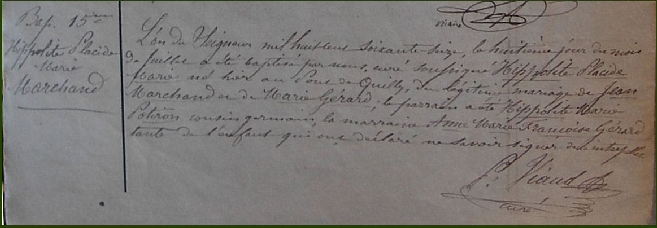 Bap. 15ième
Hippolite Placide
Marie
Marchand
vicaire
L'an du Seigneur mil huit cent soixante-seize, le huitième jour du mois
de juillet a été baptisé par nous, curé soussigné Hippolite Placide
Marie né hier au Pont de Quilly, du légitime mariage de Jean
Marchand et de Marie Gérard; le parrain a été Hippolite Marie
Potiron cousin germain, la marraine Anne Marie Françoise Gérard
tante de l'enfant qui ont déclaré ne savoir signer de ce interpellés
P. Viaud
curé